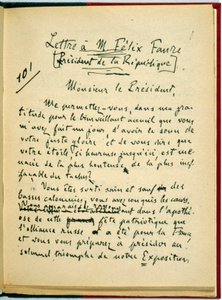 Lettre à M. Félix Faure
Président de la République
101
Monsieur le Président,
Me permettez-vous, dans ma gra-
titude pour le bienveillant accueil que vous
m'avez fait un jour, d'avoir le souci de
votre juste gloire et de vous dire que
votre étoile, si heureuse jusqu'ici est me-
nacée de la plus honteuse, de la plus inef-
façable des taches?
Vous êtes sorti sain et sauf des
basses calomnies, vous avez conquis les cœurs.
dans l'apothé-
ose de cette fête patriotique que
l'alliance russe a été pour la France
et vous vous préparez à présider au
solennel triomphe de notre Exposition